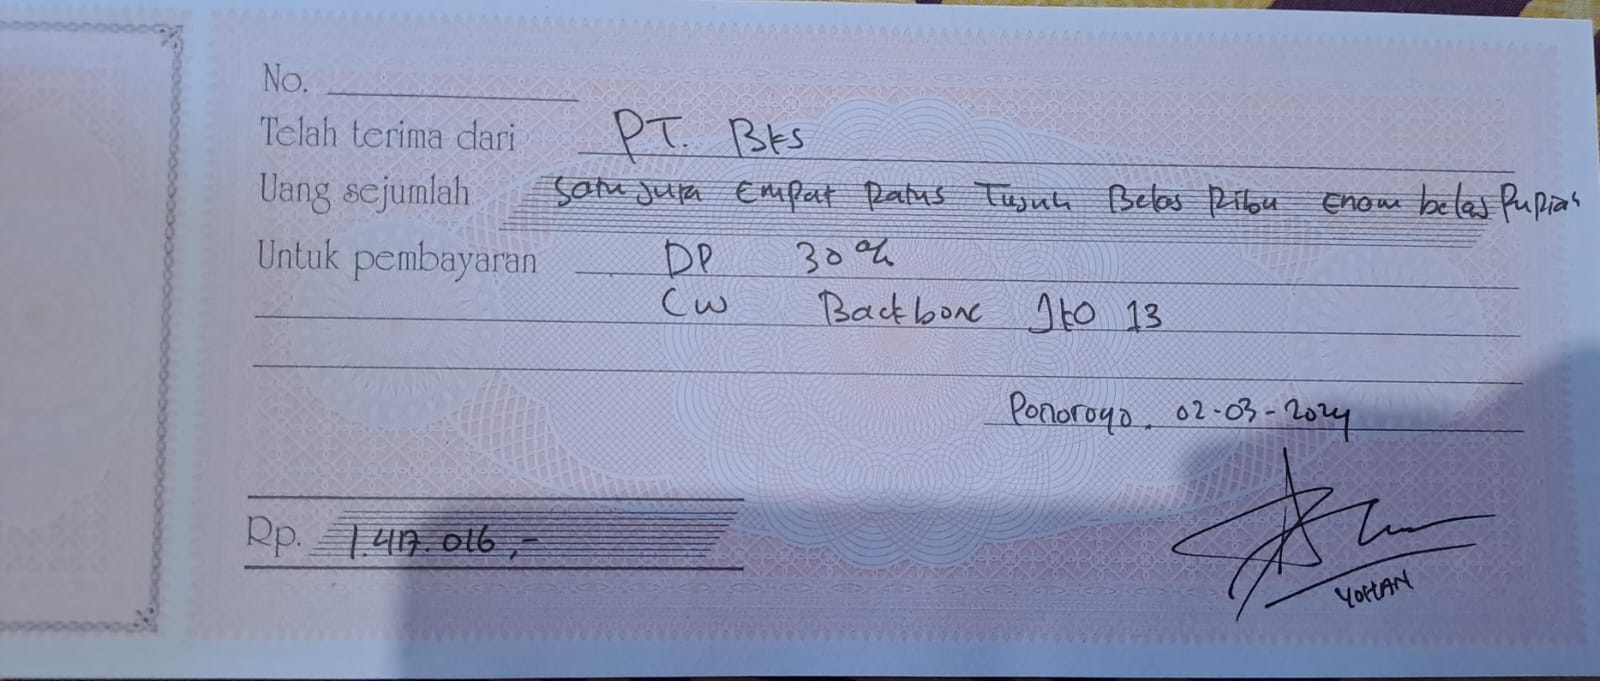 No.
Telah terima dari PT. BKS
Uang sejumlah Satu Juta Empat Ratus Tujuh Belas Ribu Enam belas Rupiah
Untuk pembayaran DP 30%
CW Backbone JKO 13
Ponorogo, 02-03-2024
Rp. 1.417.016,-
YOHAN